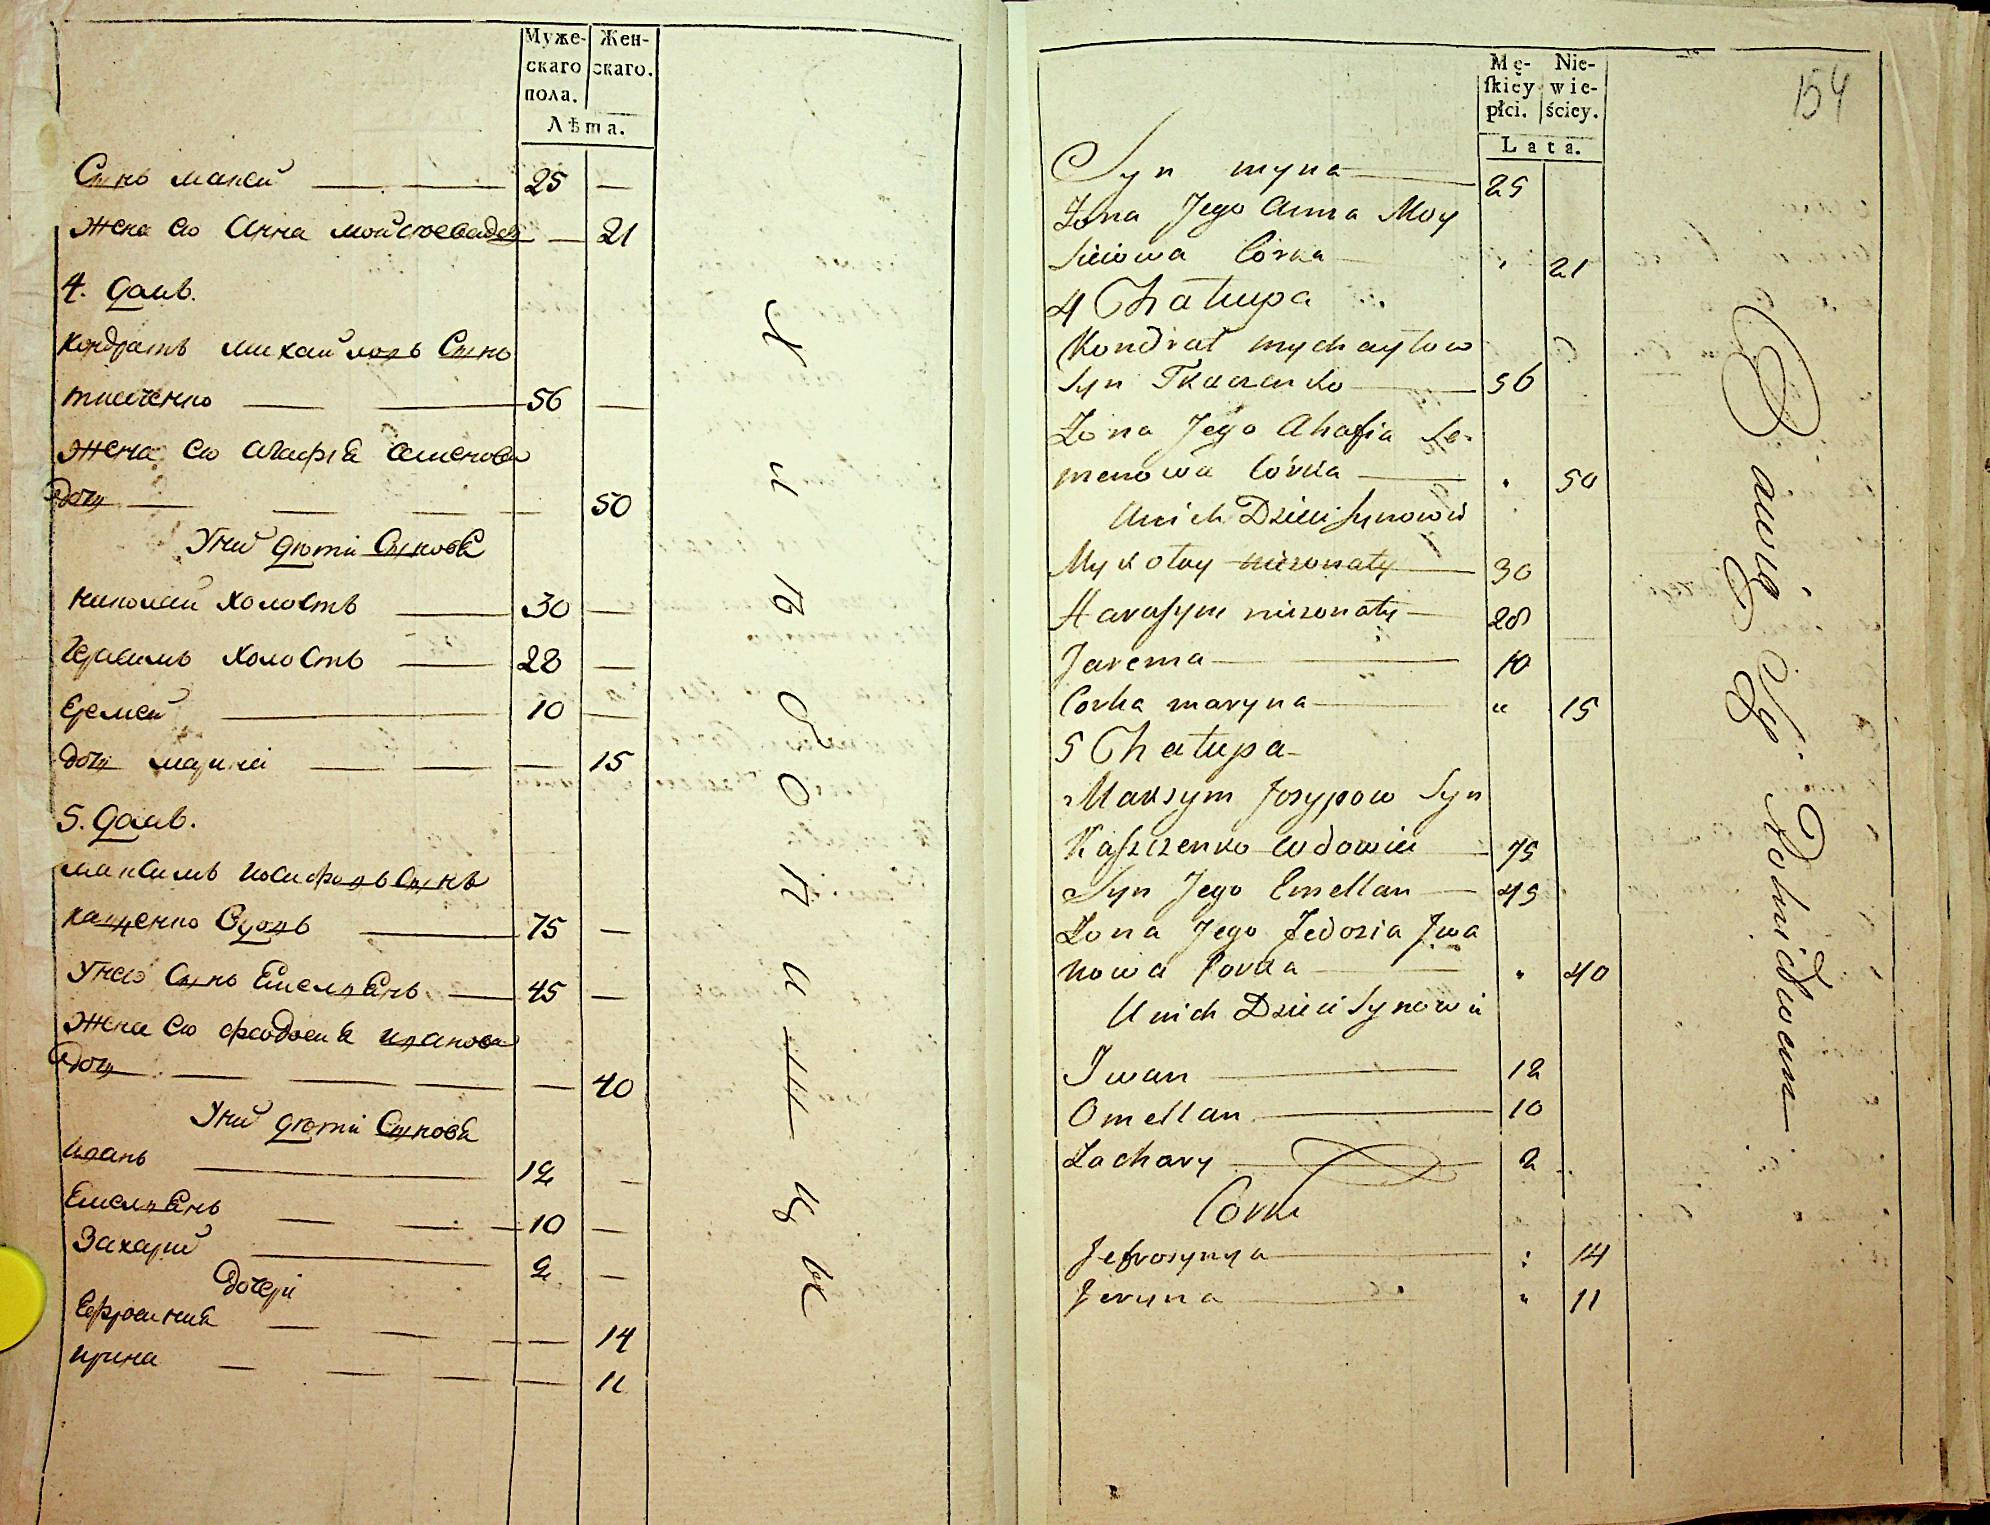 Муже- Жен-
скаго скаго.
пола.
Лѣта.
Сынъ макей 25 —
жена его Анна мойсеева дочь — 21
4. домъ.
кондратъ михайловъ Сынъ
ткаченко 56 —
жена его агафія семенова
дочь — 50
У них дѣти Сыновя
николай холостъ 30 —
Герасимъ холостъ 28 —
Еремей 10 —
дочь марина — 15
5. домъ.
максимъ иосифовъ Сынъ
кащенко Вдовъ 75 —
У него Сынъ Емельянъ 45 —
жена его феодосия иванова
дочь — 40
У них дѣти Сыновя
иванъ 12 —
Емельянъ 10 —
Захарий 2 —
дочери
Ефросиния — 14
ирина — 11
154
Mę- Nie-
skiey wie-
płci. ściey.
Lata.
Syn 25
Żona Jego Anna Moy
siiowa Córka " 21
4 Chałupa
Kondrat mychayłow
Syn Tkaczenko 56
Żona Jego Ahafia Se-
menowa Córka " 50
U nich Dzieci Synowie
Mykołay nieżonaty 30
Harasym nieżonaty 28
Jarema 10
Corka maryna " 15
5 Chałupa
Maksym Josypow Syn
Kaszczenko wdowiec 75
Syn Jego Emelian 45
Żona Jego Fedozia Jwa
nowa Corka " 40
U nich Dzieci Synowie
Jwan 12
Omelian 10
Zachary 2
Corki
Jefrosynya " 14
Jeryna " 11